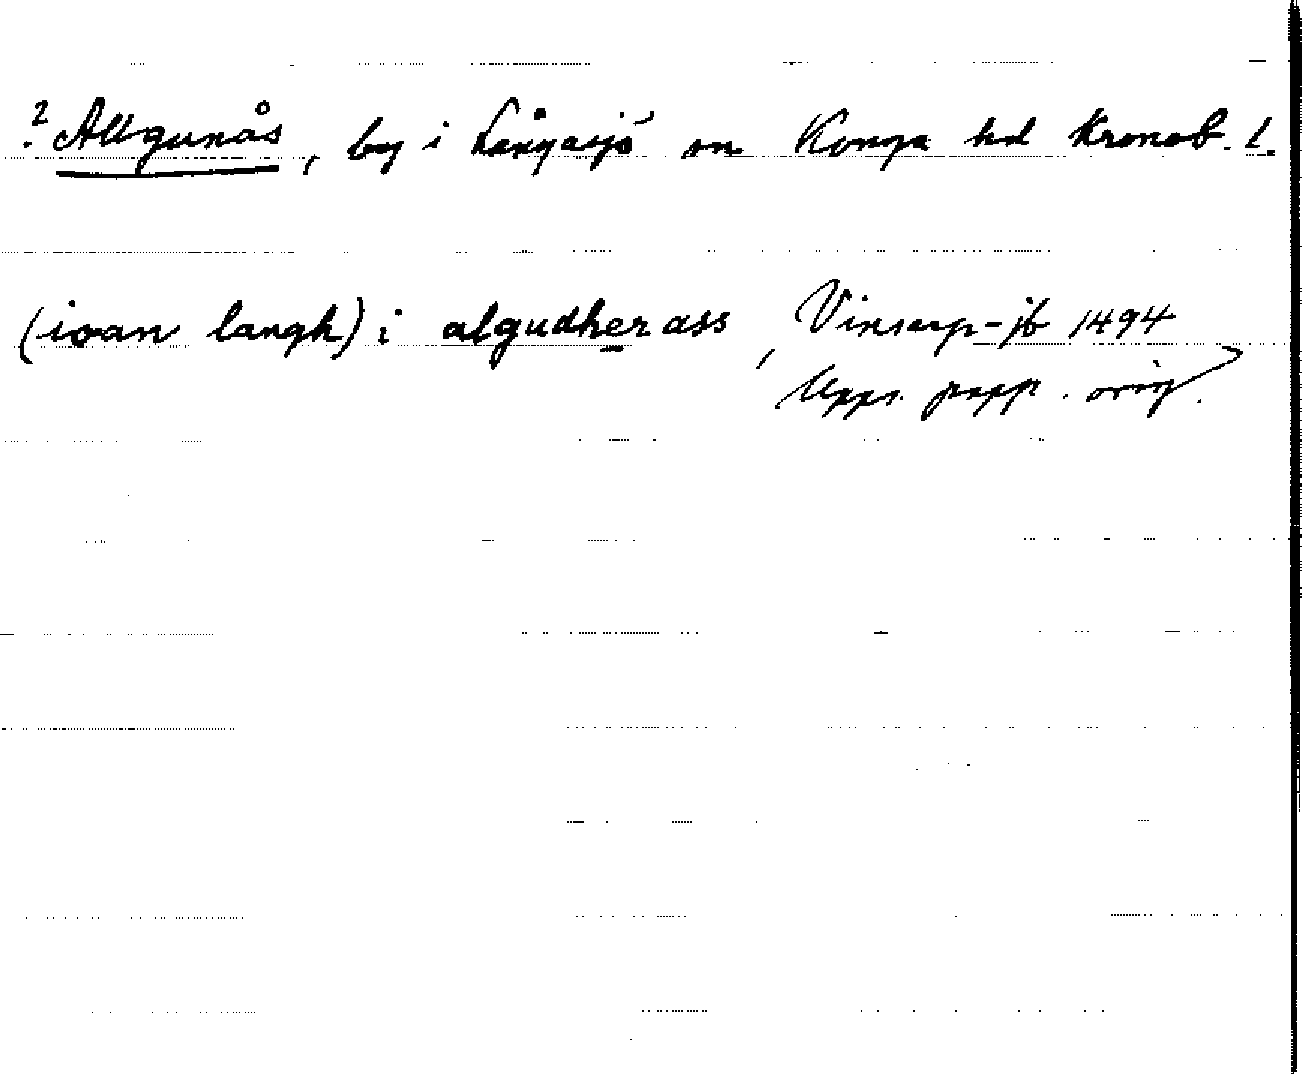 ? Allgunås, by i Långasjö sn Konga hd Kronob. l.
(ioan langh) i algudherass, Vinsarp-jb 1494
Upps. papp. orig.